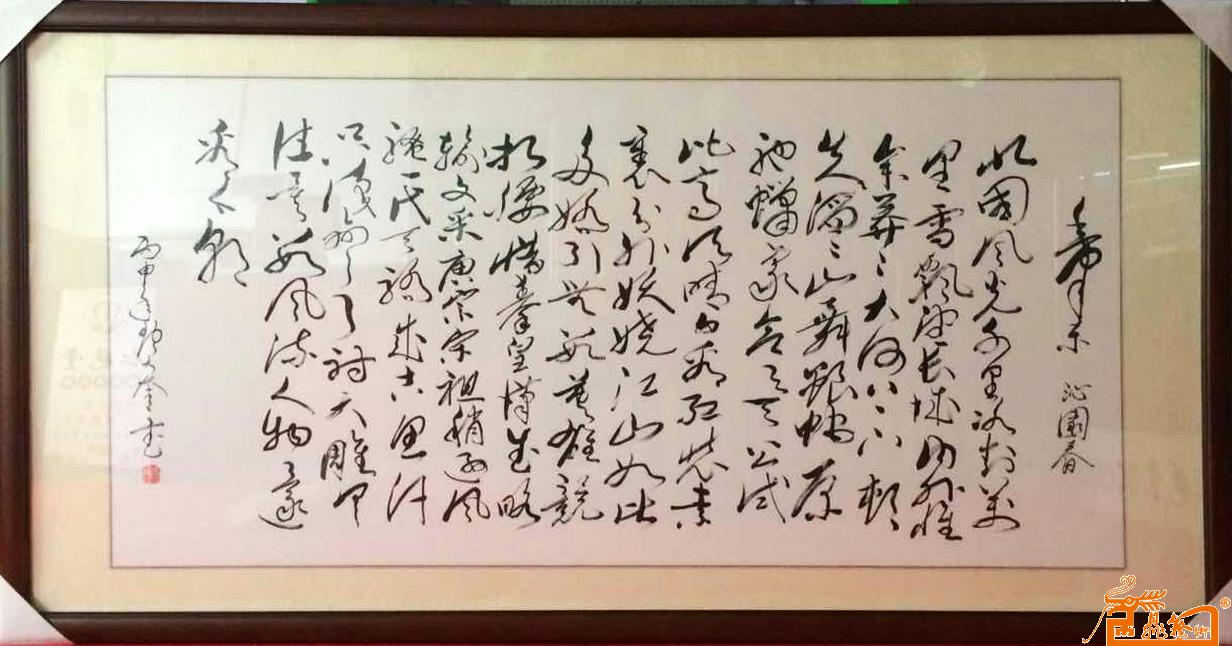 毛泽东 沁園春
北國风光千里冰封万
里雪飘望长城内外惟
余莽〻大河上下顿
失滔〻山舞銀蛇原
驰蠟象欲与天公试
比高须晴日看红装素
裹分外妖娆江山如此
多娇引无数英雄競
折腰惜秦皇漢武略
输文采唐宗宋祖稍逊风
骚一代天骄成吉思汗
只识弯弓射大雕俱
往矣数风流人物还
看今朝
丙申年